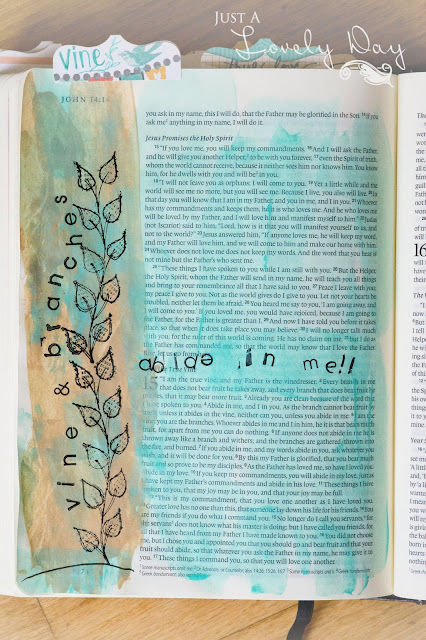 JUST A
Lovely Day
vine
JOHN 14:1
vine & branches
you ask in my name, this I will do, that the Father may be glorified in the Son. 14 If you
ask me anything in my name, I will do it.
Jesus Promises the Holy Spirit
15 "If you love me, you will keep my commandments. 16 And I will ask the Father,
and he will give you another Helper, to be with you forever, 17 even the Spirit of truth,
whom the world cannot receive, because it neither sees him nor knows him. You know
him, for he dwells with you and will be in you.
18 "I will not leave you as orphans; I will come to you. 19 Yet a little while and the
world will see me no more, but you will see me. Because I live, you also will live. 20 In
that day you will know that I am in my Father, and you in me, and I in you. 21 Whoever
has my commandments and keeps them, he it is who loves me. And he who loves me
will be loved by my Father, and I will love him and manifest myself to him." 22 Judas
(not Iscariot) said to him, "Lord, how is it that you will manifest yourself to us, and
not to the world?" 23 Jesus answered him, "If anyone loves me, he will keep my word,
and my Father will love him, and we will come to him and make our home with him.
24 Whoever does not love me does not keep my words. And the word that you hear is
not mine but the Father's who sent me.
25 "These things I have spoken to you while I am still with you. 26 But the Helper,
the Holy Spirit, whom the Father will send in my name, he will teach you all things
and bring to your remembrance all that I have said to you. 27 Peace I leave with you;
my peace I give to you. Not as the world gives do I give to you. Let not your hearts be
troubled, neither let them be afraid. 28 You heard me say to you, 'I am going away, and
I will come to you.' If you loved me, you would have rejoiced, because I am going to
the Father, for the Father is greater than I. 29 And now I have told you before it takes
place, so that when it does take place you may believe. 30 I will no longer talk much
with you, for the ruler of this world is coming. He has no claim on me, 31 but I do as
the Father has commanded me, so that the world may know that I love the Father.
abide in me!!
15 "I am the true vine, and my Father is the vinedresser. 2 Every branch in me
that does not bear fruit he takes away, and every branch that does bear fruit he
prunes, that it may bear more fruit. 3 Already you are clean because of the word that
I have spoken to you. 4 Abide in me, and I in you. As the branch cannot bear fruit by
itself, unless it abides in the vine, neither can you, unless you abide in me. 5 I am the
vine; you are the branches. Whoever abides in me and I in him, he it is that bears much
fruit, for apart from me you can do nothing. 6 If anyone does not abide in me he is
thrown away like a branch and withers; and the branches are gathered, thrown into
the fire, and burned. 7 If you abide in me, and my words abide in you, ask whatever you
wish, and it will be done for you. 8 By this my Father is glorified, that you bear much
fruit and so prove to be my disciples. 9 As the Father has loved me, so have I loved you.
Abide in my love. 10 If you keep my commandments, you will abide in my love, just as
I have kept my Father's commandments and abide in his love. 11 These things I have
spoken to you, that my joy may be in you, and that your joy may be full.
12 "This is my commandment, that you love one another as I have loved you.
13 Greater love has no one than this, that someone lay down his life for his friends. 14 You
are my friends if you do what I command you. 15 No longer do I call you servants, for
the servant does not know what his master is doing; but I have called you friends, for
all that I have heard from my Father I have made known to you. 16 You did not choose
me, but I chose you and appointed you that you should go and bear fruit and that your
fruit should abide, so that whatever you ask the Father in my name, he may give it to
you. 17 These things I command you, so that you will love one another.